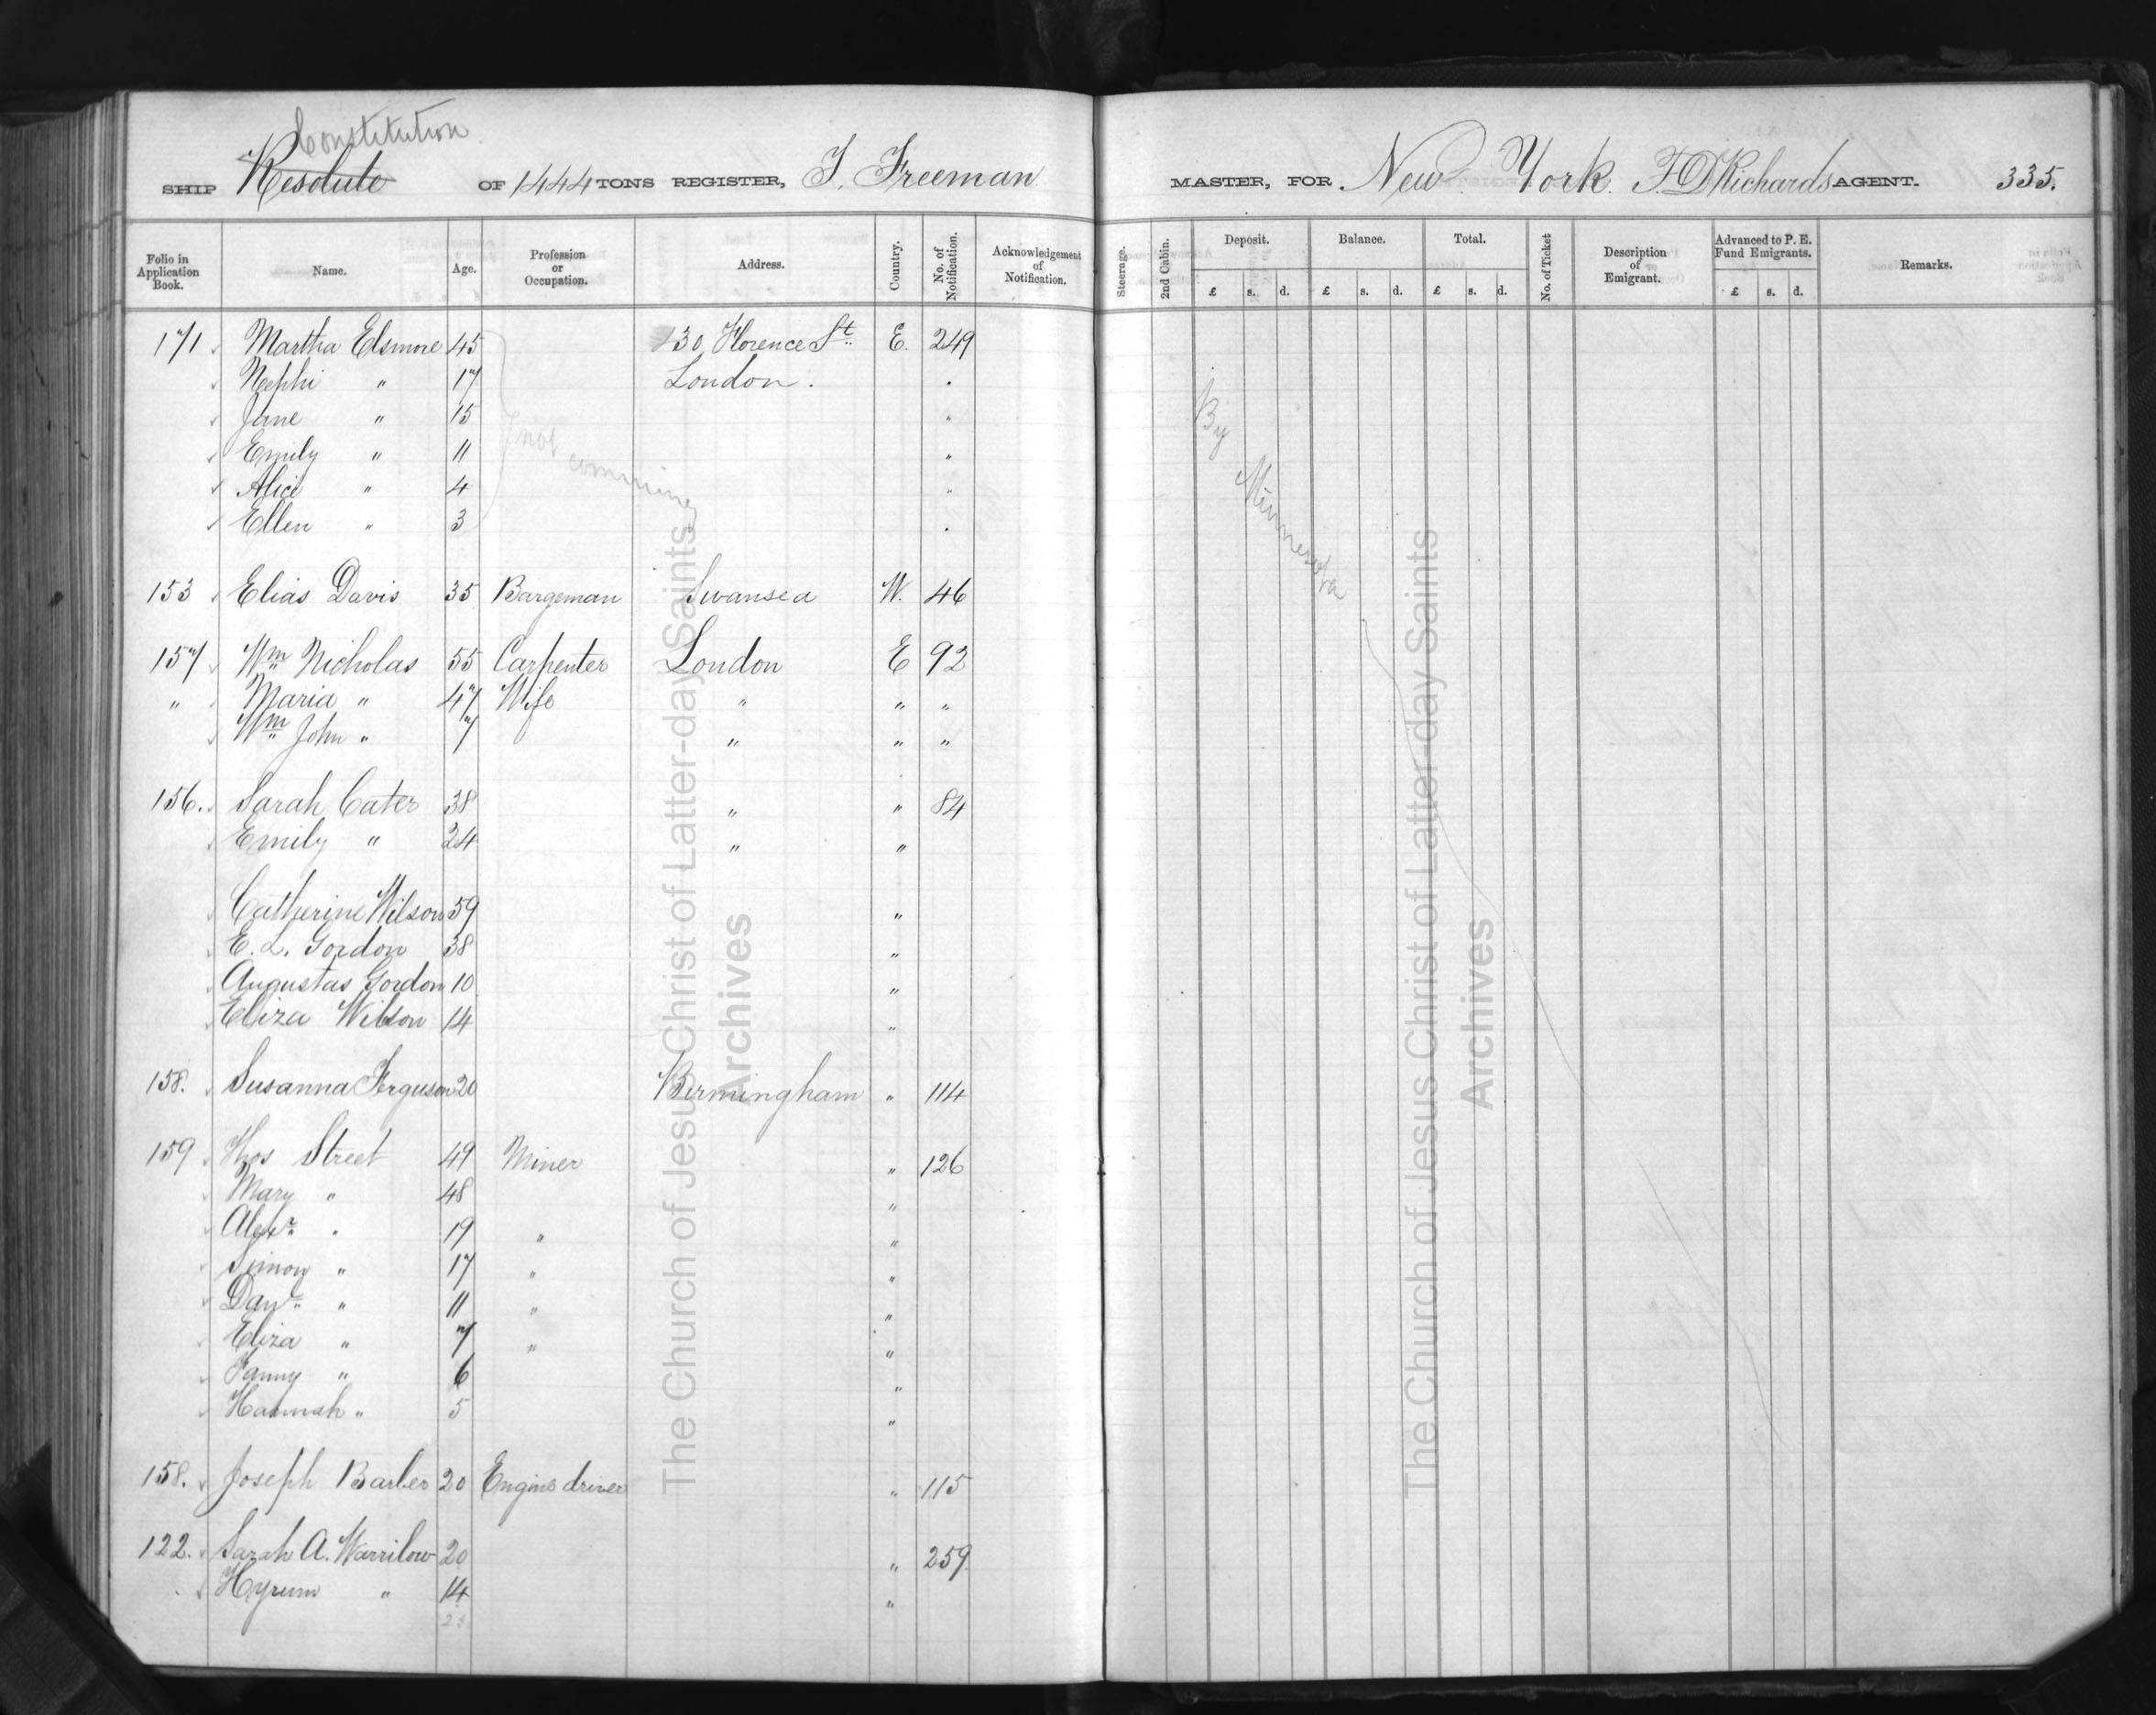 Constitution
SHIP Resolute OF 1444 TONS REGISTER, J. Freeman MASTER, FOR New York. F D Richards AGENT. 335.
Folio in Application Book. Name. Age. Profession or Occupation. Address. Country. No. of Notification. Acknowledgement of Notification. Steerage. 2nd Cabin. Deposit. £ s. d. Balance. £ s. d. Total. £ s. d. No. of Ticket Description of Emigrant. Advanced to P. E. Fund Emigrants. £ s. d. Remarks.
171 Martha Elsmore 45 130 Florence St. E. 249
Nephi " 17 London.
Jane " 15 "
Emily " 11 "
Alice " 4 "
Ellen " 3
not comming
By Minnesota
153 Elias Davis 35 Bargeman Swansea W. 46
157 Wm Nicholas 55 Carpenter London E 92
" Maria " 47 Wife " " "
Wm John " 7 " " "
156. Sarah Cater 38 " " 84
Emily " 24 " "
Catherine Wilson 59 "
E. L. Gordon 38 "
Augustas Gordon 10 "
Eliza Wilson 14 "
158. Susanna Ferguson 20 Birmingham " 114
159 Thos Street 49 Miner " 126
Mary " 48 "
Alexr " 19 " "
Simon " 17 " "
Danl " 11 " "
Eliza " 7 " "
Fanny " 6 "
Hannah " 5 "
158. Joseph Barber 20 Engine driver " 115
122. Sarah A. Warrilow 20 " 259
Hyrum " 14 "
The Church of Jesus Christ of Latter-day Saints
Archives
The Church of Jesus Christ of Latter-day Saints
Archives